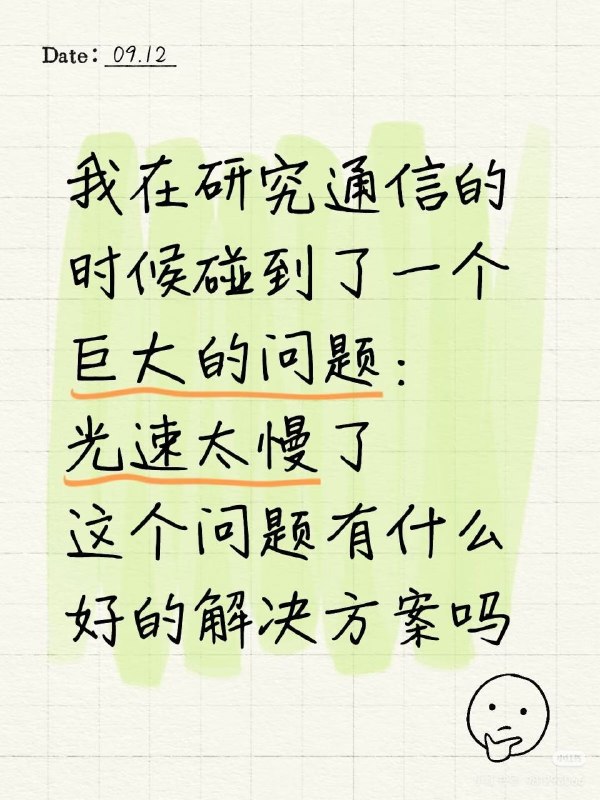 Date: 09.12
我在研究通信的
时候碰到了一个
巨大的问题：
光速太慢了
这个问题有什么
好的解决方案吗
小红书